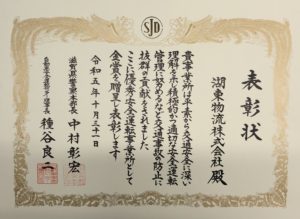 SJD
表彰状
湖東物流株式会社 殿
貴事業所は平素から交通安全に深い
理解を示し積極的かつ適切な安全運転
管理に努めるなど交通事故の防止に
抜群の貢献をされました
ここに優秀安全運転事業所として
金賞を贈呈して表彰します
令和五年十月三十一日
滋賀県警察本部長 中村彰宏
自動車安全運転センター理事長 種谷良二